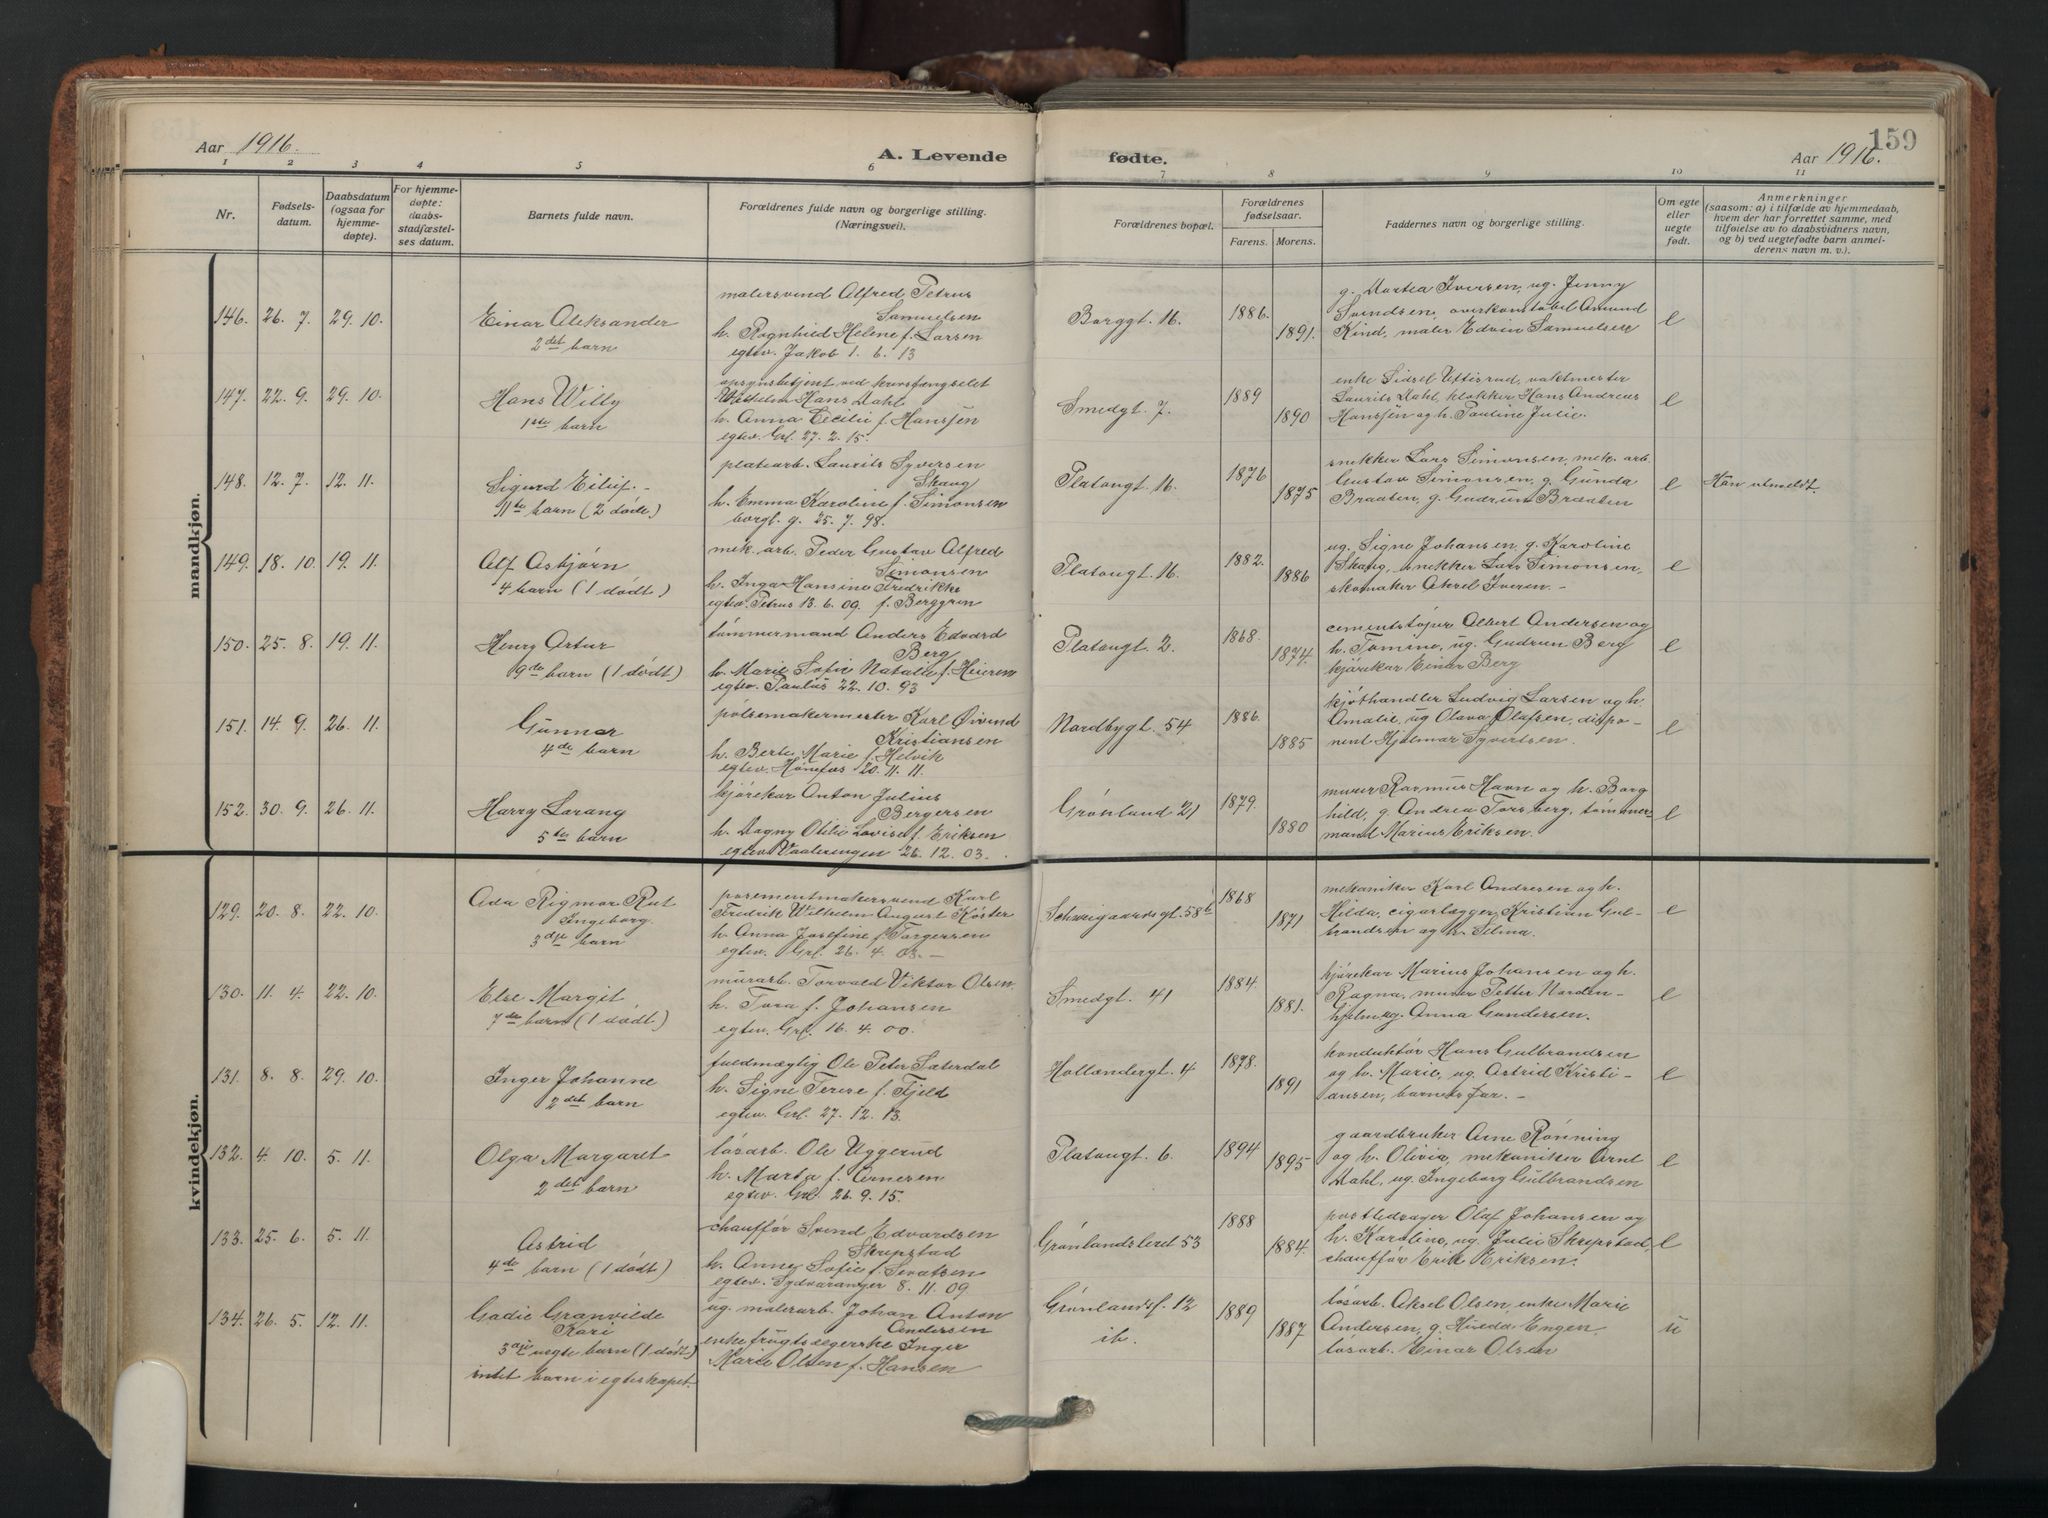 Aar 1916.
A. Levende
fødte.
159
Aar 1916.
1 2 3 4 5 6 7 8 9 10 11
Nr.
Fødsels-
datum.
Daabsdatum
(ogsaa for
hjemme-
døpte).
For hjemme-
døpte:
daabs-
stadfæstel-
ses datum.
Barnets fulde navn.
Forældrenes fulde navn og borgerlige stilling.
(Næringsvei).
Forældrenes bopæl.
Forældrenes
fødselsaar.
Farens. Morens.
Faddernes navn og borgerlige stilling.
Om egte
eller
uegte
født.
Anmerkninger
(saasom: a) i tilfælde av hjemmedaab,
hvem der har forrettet samme, med
tilføielse av to daabsvidners navn,
og b) ved uegtefødte barn anmel-
derens navn m. v.).
mandkjøn.
146. 26. 7. 29. 10.
Einar Aleksander
2det barn
malersvend Alfred Petrus
Samuelsen
h. Ragnhild Helene f. Larsen
egtev. Jakob 1. 6. 13
Borggt. 16.
1886.
1891.
g. Martea Iversen, ug. Jenny
Svendsen, overkonstabel Amund
Kind, maler Edvin Samuelsen
e
147. 22. 9. 29. 10.
Hans Willy
1ste barn
opsynsbetjent ved
Hans Dahl
h. Anna Cecilie f. Hanssen
egtev. Grl. 27. 2. 15.
Smedgt. 7.
1889
1890
enke Sidsel Uttisrud, vaktmester
Laurits Dahl, klokker Hans Andreas
Hanssen og h. Pauline Julie.
e
148. 12. 7. 12. 11.
Sigurd Eiluf.
11te barn (2 døde)
platearb. Laurits Syversen
Skaug
h. Emma Karoline f. Simonsen
borgl. g. 25. 7. 98.
Platougt. 16.
1876
1875
snekker Lars Simonsen, mek. arb.
Gustav Simonsen, g. Gunda
Braaten, g. Gudrun Braaten
e
Har utmeldt.
149. 18. 10. 19. 11.
Alf Asbjørn
4 barn (1 dødt)
mek. arb. Peder Gustav Alfred
Simonsen
h. Inga Hansine Fredrikke
egtev. Petrus 13. 6. 09. f. Berggren
Platougt. 16.
1882.
1886
ug. Signe Johansen, g. Karoline
Skaug, snekker Lars Simonsen,
skomaker Aksel Iversen. -
e
150. 25. 8. 19. 11.
Henry Artur
9de barn (1 dødt)
tømmermand Anders Edvard
Berg
h. Marie Sofie Natalie f. Heieren
egtev. Paulus 22. 10. 93
Platougt. 2.
1868.
1874.
cementstøper Albert Andersen og
h. Tomine, ug. Gudrun Berg
kjørekar Einar Berg
e
151. 14. 9. 26. 11.
Gunnar
4de barn
pølsemakermester Karl Øivind
Kristiansen
h. Berte Marie f. Helvik
egtev. Hønefos 20. 11. 11.
Nordbygt. 54
1886.
1885
kjøthandler Ludvig Larsen og h.
Amalie, ug Olava Olafsen, dispo-
nent Hjalmar Syvertsen.
e
152. 30. 9. 26. 11.
Harry Lorang
5te barn
kjørekar Anton Julius
Bergersen
h. Dagny Otilie Lovise f. Eriksen
egtev. Vaaleringen 26. 12. 03.
Grønland 21
1879.
1880
murer Rasmus Havn og h. Borg
hild, g. Andrea Torsberg, tømmer
mand Marius Eriksen.
e
kvindekjøn.
129. 20. 8. 22. 10.
Ada Rigmor Rut
Ingeborg.
3dje barn
posementmakersvend Karl
Fredrik Wilhelm August Köster
h. Anna Josefine f. Torgersen
egtev. Grl. 26. 4. 03. -
Schweigaardsgt. 58b
1868
1871
mekaniker Karl Andresen og h.
Hilda, cigarlægger Kristian Gul-
brandsen og h. Selma.
e
130. 11. 4. 22. 10.
Else Margit
7de barn (1 dødt.)
murarb. Torvald Viktor Olsen.
h. Tora f. Johansen
egtev. Grl. 16. 4. 00.
Smedgt. 41
1884.
1881.
kjørekar Marius Johansen og h.
Ragna, murer Petter Norden-
hjelm, ug. Anna Gundersen.
e
131. 8. 8. 29. 10.
Inger Johanne
2det barn
fuldmægtig Ole Peter Sæterdal
h. Signe Terese f. Fjeld
egtev. Grl. 27. 12. 13.
Hollændergt. 4
1878.
1891
konduktør Hans Gulbrandsen
og h. Marie, ug. Astrid Kristi-
ansen, barnets far. -
e
132. 4. 10. 5. 11.
Olga Margaret
2det barn
løsarb. Ole Uggerud
h. Marta f. Arnesen
egtev. Grl. 26. 9. 15.
Platougt. 6.
1894
1895
gaardbruker Arne Rønning
og h. Olivia, mekaniker Arne
Dahl, ug. Ingeborg Gulbrandsen
e
133. 25. 6. 5. 11.
Astrid
4de barn (1 dødt)
chauffør Svend Edvardsen
Skripstad
h. Anne Sofie f. Sivatsen
egtev. Sydvaranger 8. 11. 09
Grønlandsleret 53
1888
1884.
postbedrager Olaf Johansen og
h. Karoline, ug. Julie Skripstad,
chauffør Erik Eriksen.
e
134. 26. 5. 12. 11.
Gadie Granvilde
Kari
3die uegte barn (1 dødt)
intet barn i egteskapet.
ug. malerarb. Johan Anton
Andersen
enke frugtsælgerske Inger
Marie Olsen f. Hansen
Grønlandsl. 12
ib.
1889
1887
løsarb. Aksel Olsen, enke Marie
Andersen, g. Hilda Engen,
løsarb. Einar Olsen
u